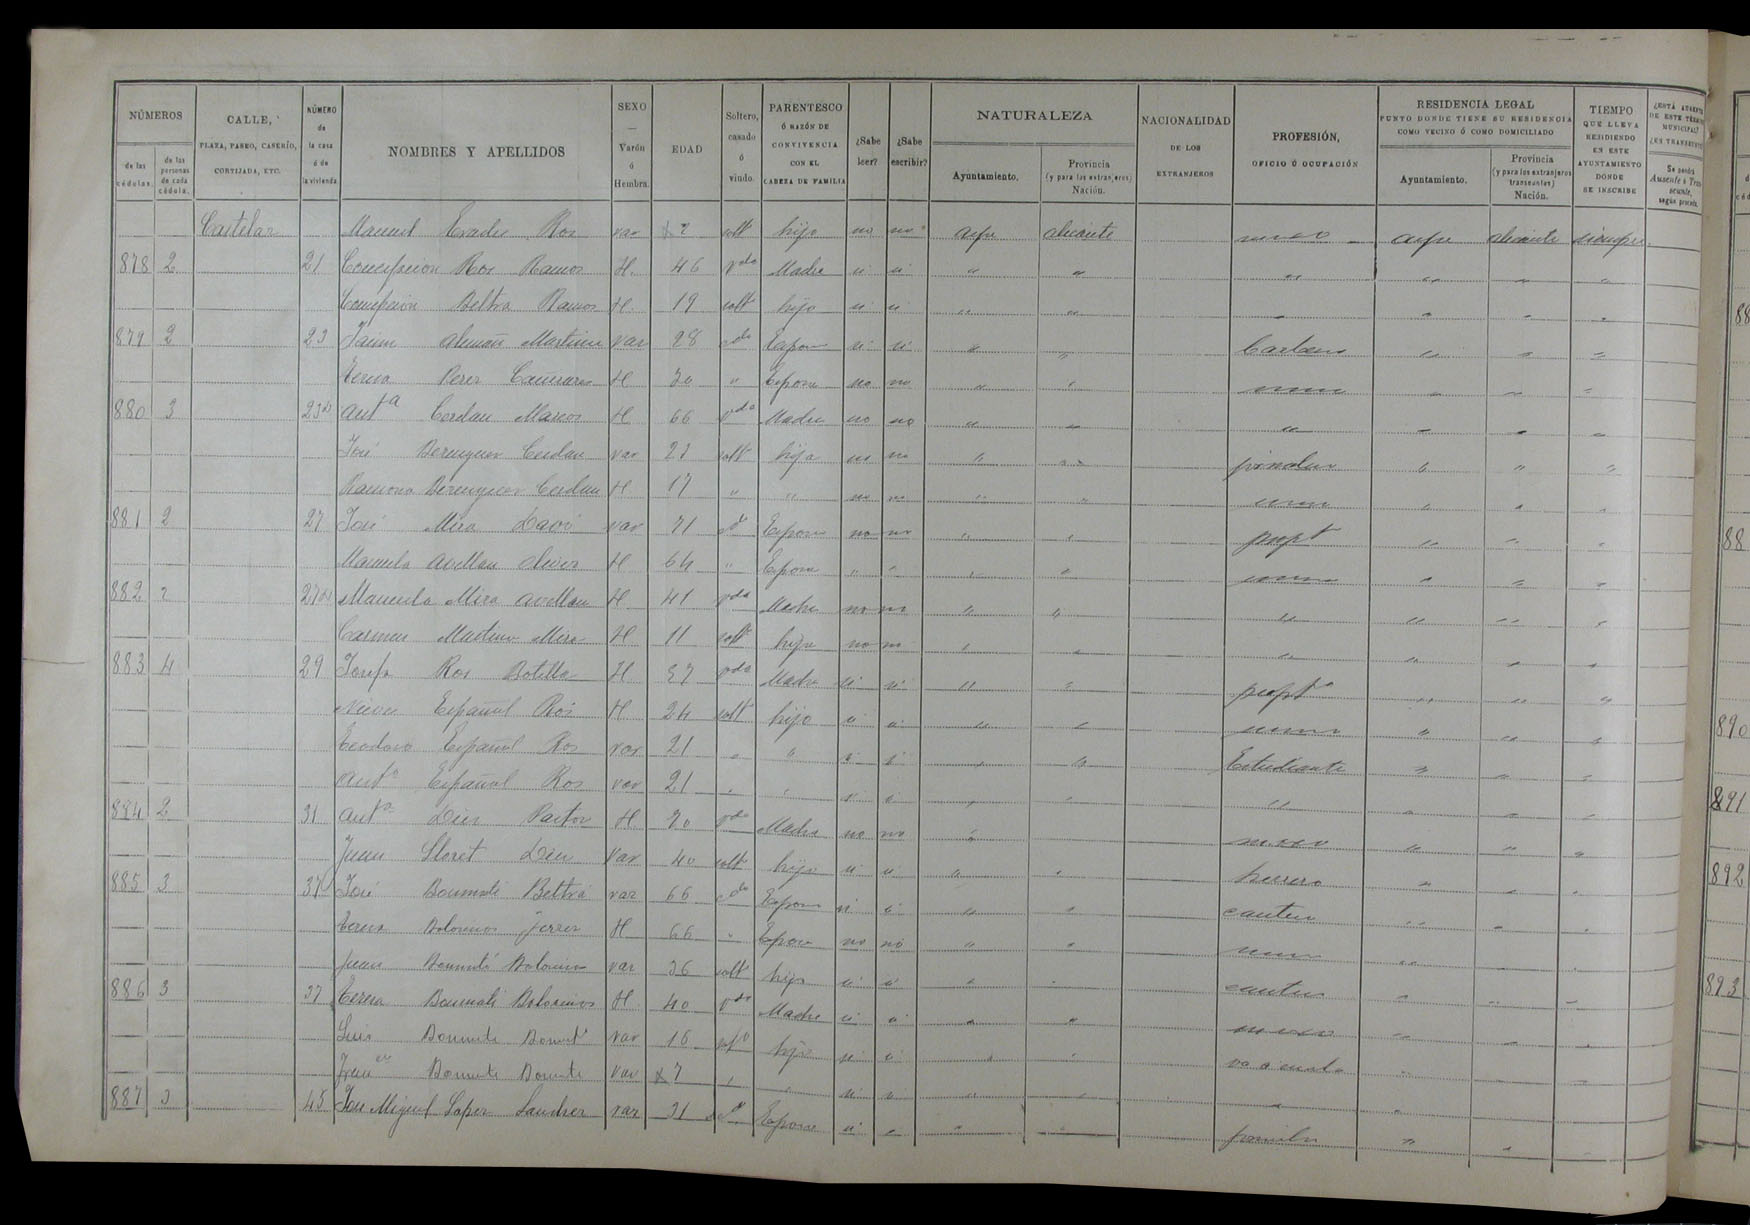 NÚMEROS
de las cédulas.
de las personas de cada cédula.
CALLE,
PLAZA, PASEO, CASERÍO,
CORTIJADA, ETC.
NÚMERO de la casa ó de la vivienda
NOMBRES Y APELLIDOS
SEXO — Varón ó Hembra.
EDAD
Soltero, casado ó viudo.
PARENTESCO Ó RAZÓN DE CONVIVENCIA CON EL CABEZA DE FAMILIA
¿Sabe leer?
¿Sabe escribir?
NATURALEZA
Ayuntamiento.
Provincia (y para los extranjeros) Nación.
NACIONALIDAD DE LOS EXTRANJEROS
PROFESIÓN,
OFICIO Ó OCUPACIÓN
RESIDENCIA LEGAL
PUNTO DONDE TIENE SU RESIDENCIA
COMO VECINO Ó COMO DOMICILIADO
Ayuntamiento.
Provincia (y para los extranjeros transeuntes) Nación.
TIEMPO QUE LLEVA RESIDIENDO EN ESTE AYUNTAMIENTO DONDE SE INSCRIBE
¿ESTÁ AUSENTE DE ESTE TÉRMINO MUNICIPAL?
Castelar Manuel Ros var solt hijo no no aspe alicante aspe alicante siempre
878 2 21 Concepcion Ros Ramos H. 46 Vda Madre si si " " " " " "
Concepcion Beltra Ramos H. 19 solt hija si si " " " " " "
879 2 23 Jaime Alemañ Martinez var 28 cdo Esposo si si " " " " "
Teresa Perez Cañizares H 30 " Esposa no no " " " " "
880 3 23 Anta Cerdan Marcos H 66 Vda Madre no no " " " " " "
José Berenguer Cerdan var 23 solt hijo no no " " jornalero " " "
Ramona Berenguer Cerdan H 17 " " no no " " " " "
881 2 27 José Mira Davó var 71 cdo Esposo no no " " propt " " "
Manuela Avellan Oliver H 64 " Esposa " " " " " " "
882 2 27 Manuela Mira Avellan H 41 Vda Madre no no " " " " " "
Carmen Martinez Mira H 11 solt hija no no " " " " " "
883 4 29 Josefa Ros Botella H 57 Vda Madre si si " " propta " " "
Nieves Español Ros H 24 solt hija si si " " " " "
Teodoro Español Ros var 21 " " si si " " Estudiante " " "
Anto Español Ros var 21 " " si si " " " " " "
884 2 31 Anta Diez Pastor H 70 Vda Madre no no " " " "
Juan Lloret Diez Var 40 solt hijo si si " " herrero " " "
885 3 37 José Bonmati Beltrá var 66 cdo Esposo si si " " cantero " " "
Teresa Bolorinos Ferrer H 66 " Esposa no no " " " "
Juan Bonmati Bolorinos var 36 solt hijo si si " " cantero " " "
886 3 37 Teresa Bonmati Bolorinos H 40 Vda Madre si si " " " " "
Luis Bonmati Bonmati var 16 solt hijo si si " " " "
Franco Bonmati Bonmati var 7 " " si si " " " "
887 3 45 José Miguel Lopez Sanchez var 31 cdo Esposo si " " " " "
890
891
892
893